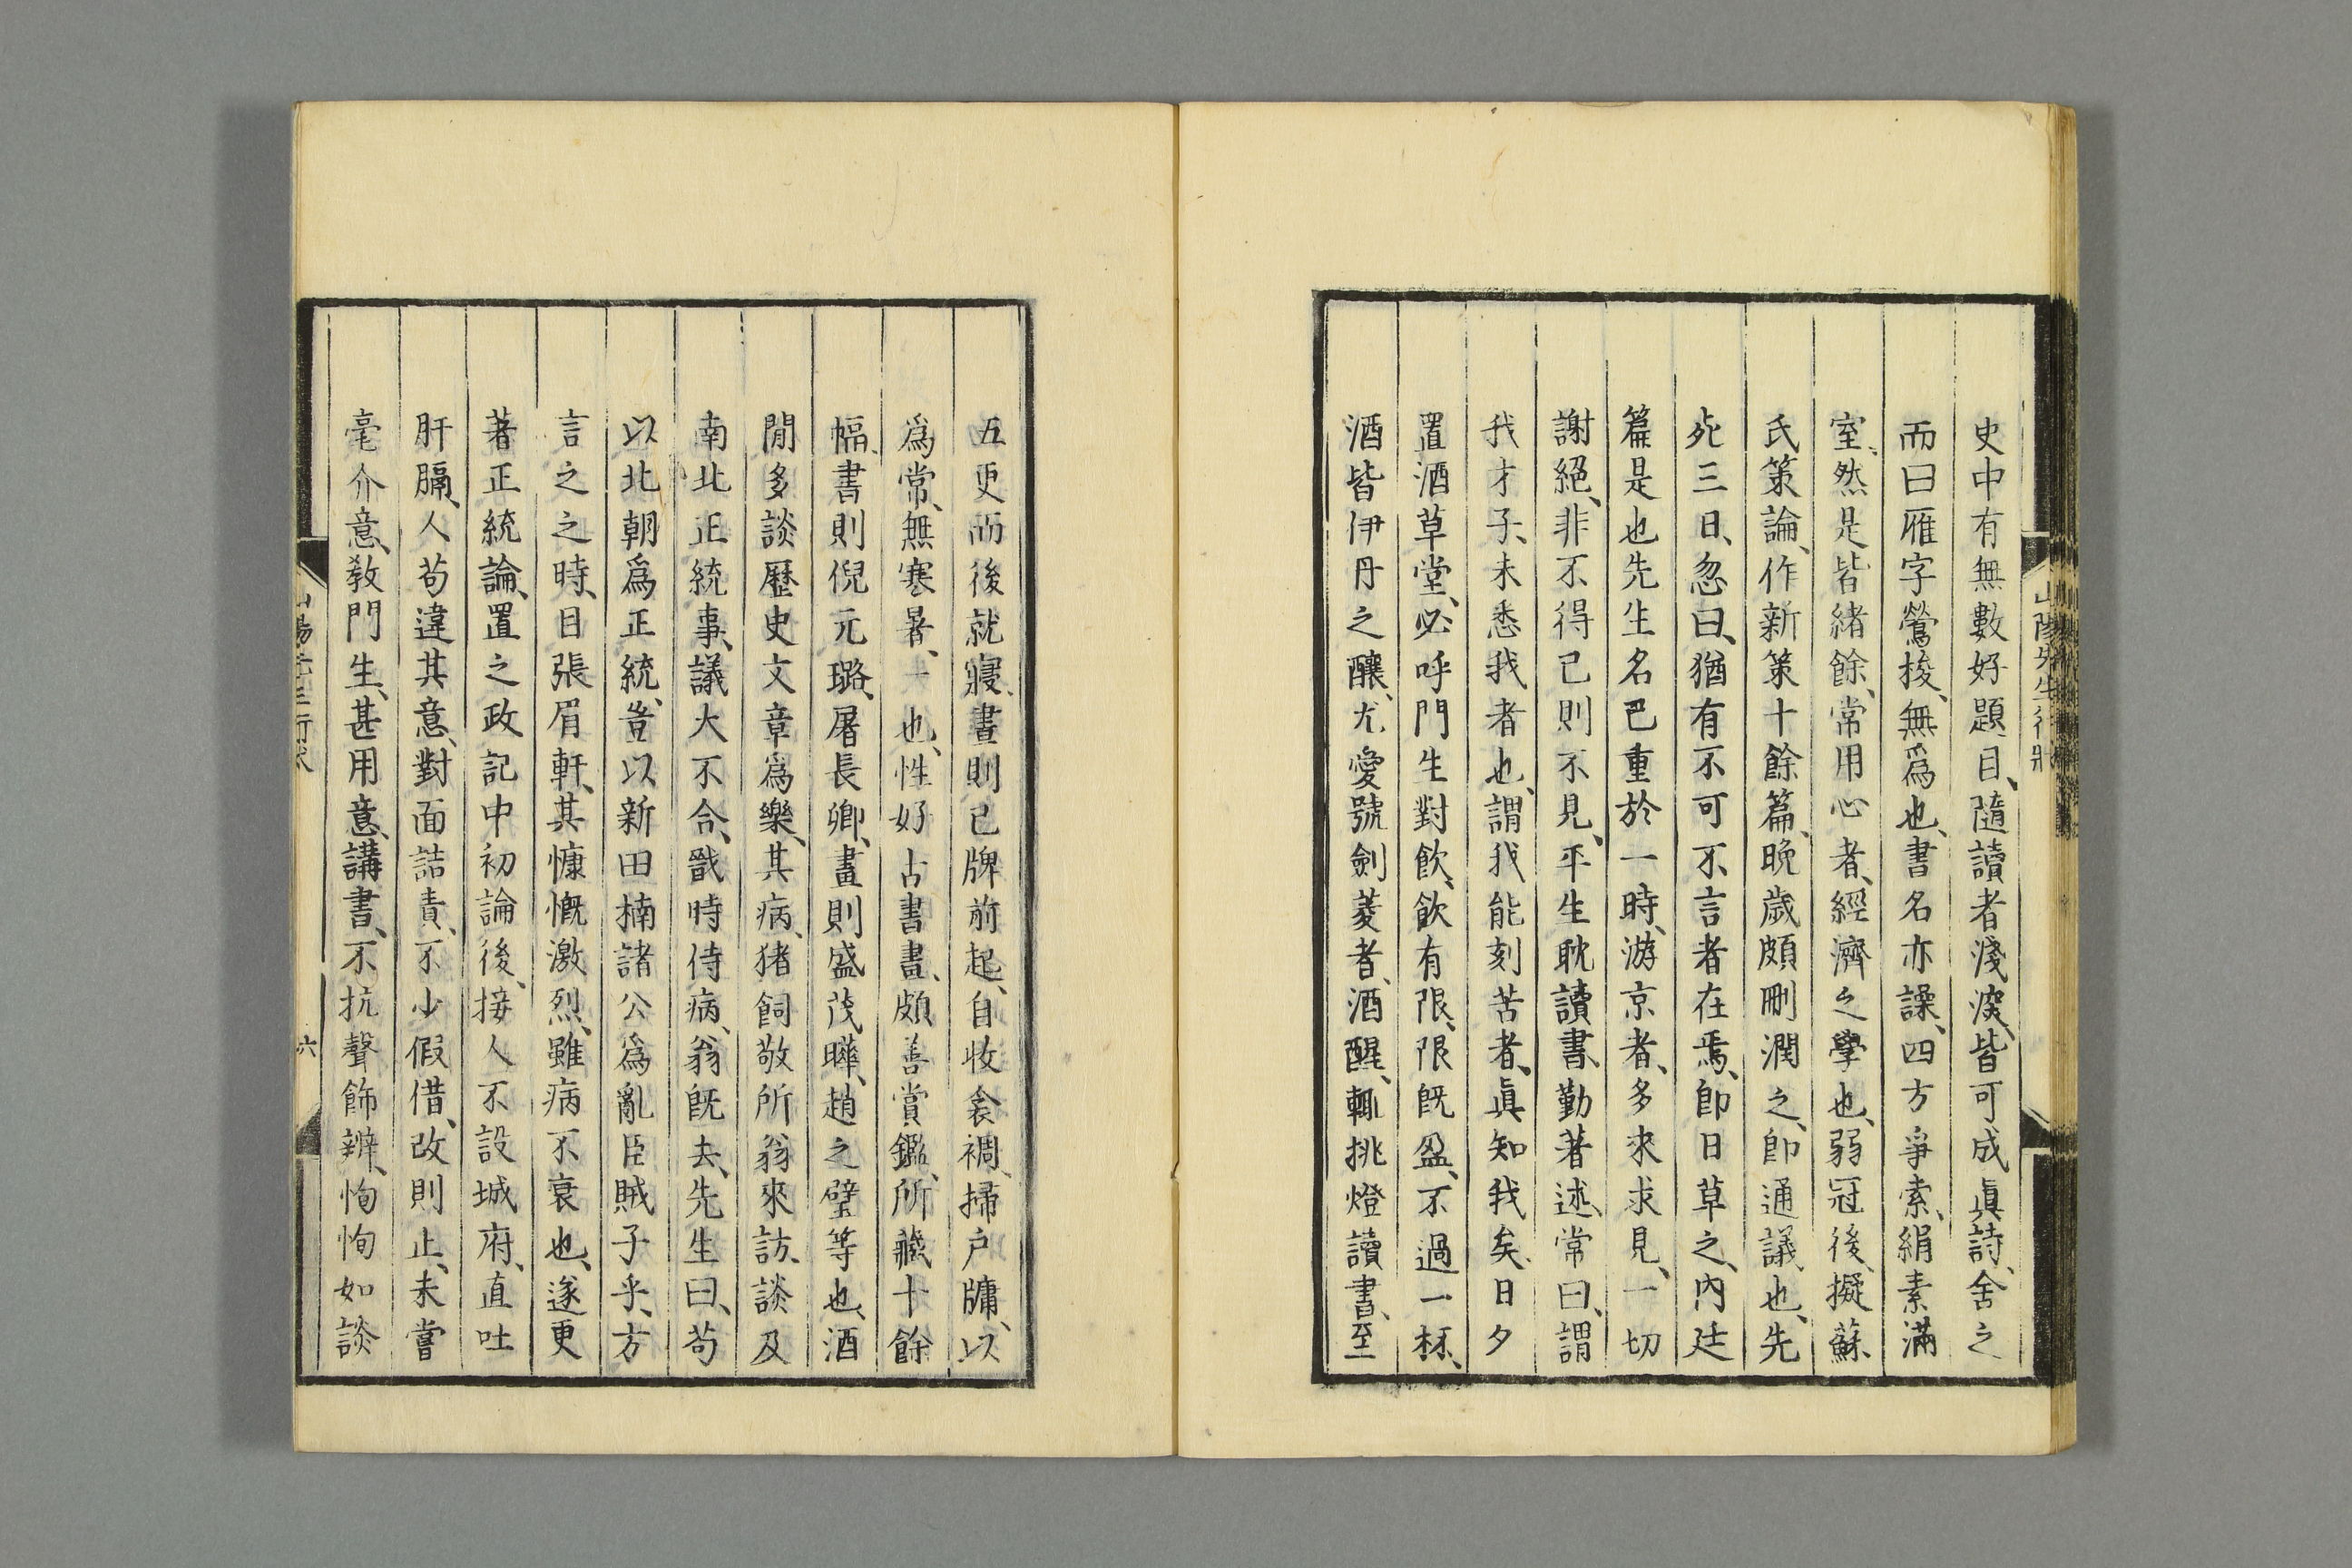 山陽先生行狀
史中有無數好題目、隨讀者淺深、皆可成眞詩、舍之
而曰雁字鶯梭、無爲也、書名亦譟、四方爭索、絹素滿
室、然是皆緒餘、常用心者、經濟之學也、弱冠後、擬蘇
氏策論、作新策十餘篇、晚歲頗刪潤之、卽通議也、先
死三日、忽曰、猶有不可不言者在焉、卽日草之、內廷
篇是也先生名已重於一時、游京者、多來求見、一切
謝絕、非不得已則不見、平生耽讀書、勤著述、常曰、謂
我才子、未悉我者也、謂我能刻苦者、眞知我矣、日夕
置酒草堂、必呼門生對飮、飮有限、限旣盈、不過一杯、
酒皆伊丹之釀、尤愛號劍菱者、酒醒、輒挑燈讀書、至
五更而後就寢、晝則已牌前起、自收衾裯、掃戶牖、以
爲常、無寒暑、一也、性好古書畫、頗善賞鑑、所藏十餘
幅、書則倪元璐、屠長卿、畫則盛茂曄、趙之璧等也、酒
間多談歷史文章爲樂、其病、猪飼敬所翁來訪、談及
南北正統事、議大不合、戬時侍病、翁旣去、先生曰、苟
以北朝爲正統、豈以新田楠諸公爲亂臣賊子乎、方
言之之時、目張眉軒、其慷慨激烈、雖病不衰也、遂更
著正統論、置之政記中初論後、接人不設城府、直吐
肝膈、人苟違其意、對面詰責、不少假借、改則止、未嘗
毫介意、敎門生、甚用意、講書、不抗聲飾辨、恂恂如談
六